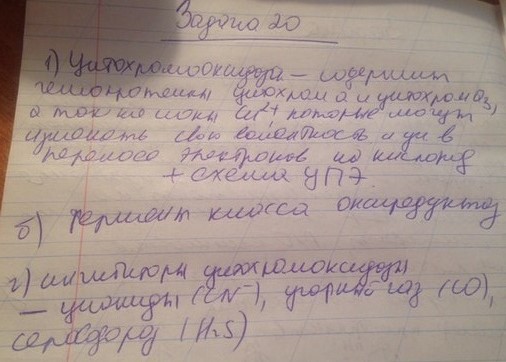 Задача 20
1) Цитохромоксидаза – содержит
гемопротеины цитохром a и цитохром a3,
а также ионы Cu2+ которые могут
изменять свою валентность и уч в
переносе электронов на кислород
+ схема ЦПЭ
б) фермент класса оксиредуктаз
г) ингибиторы цитохромоксидазы
– цианиды (CN-), угарный газ (CO),
сероводород (H2S)